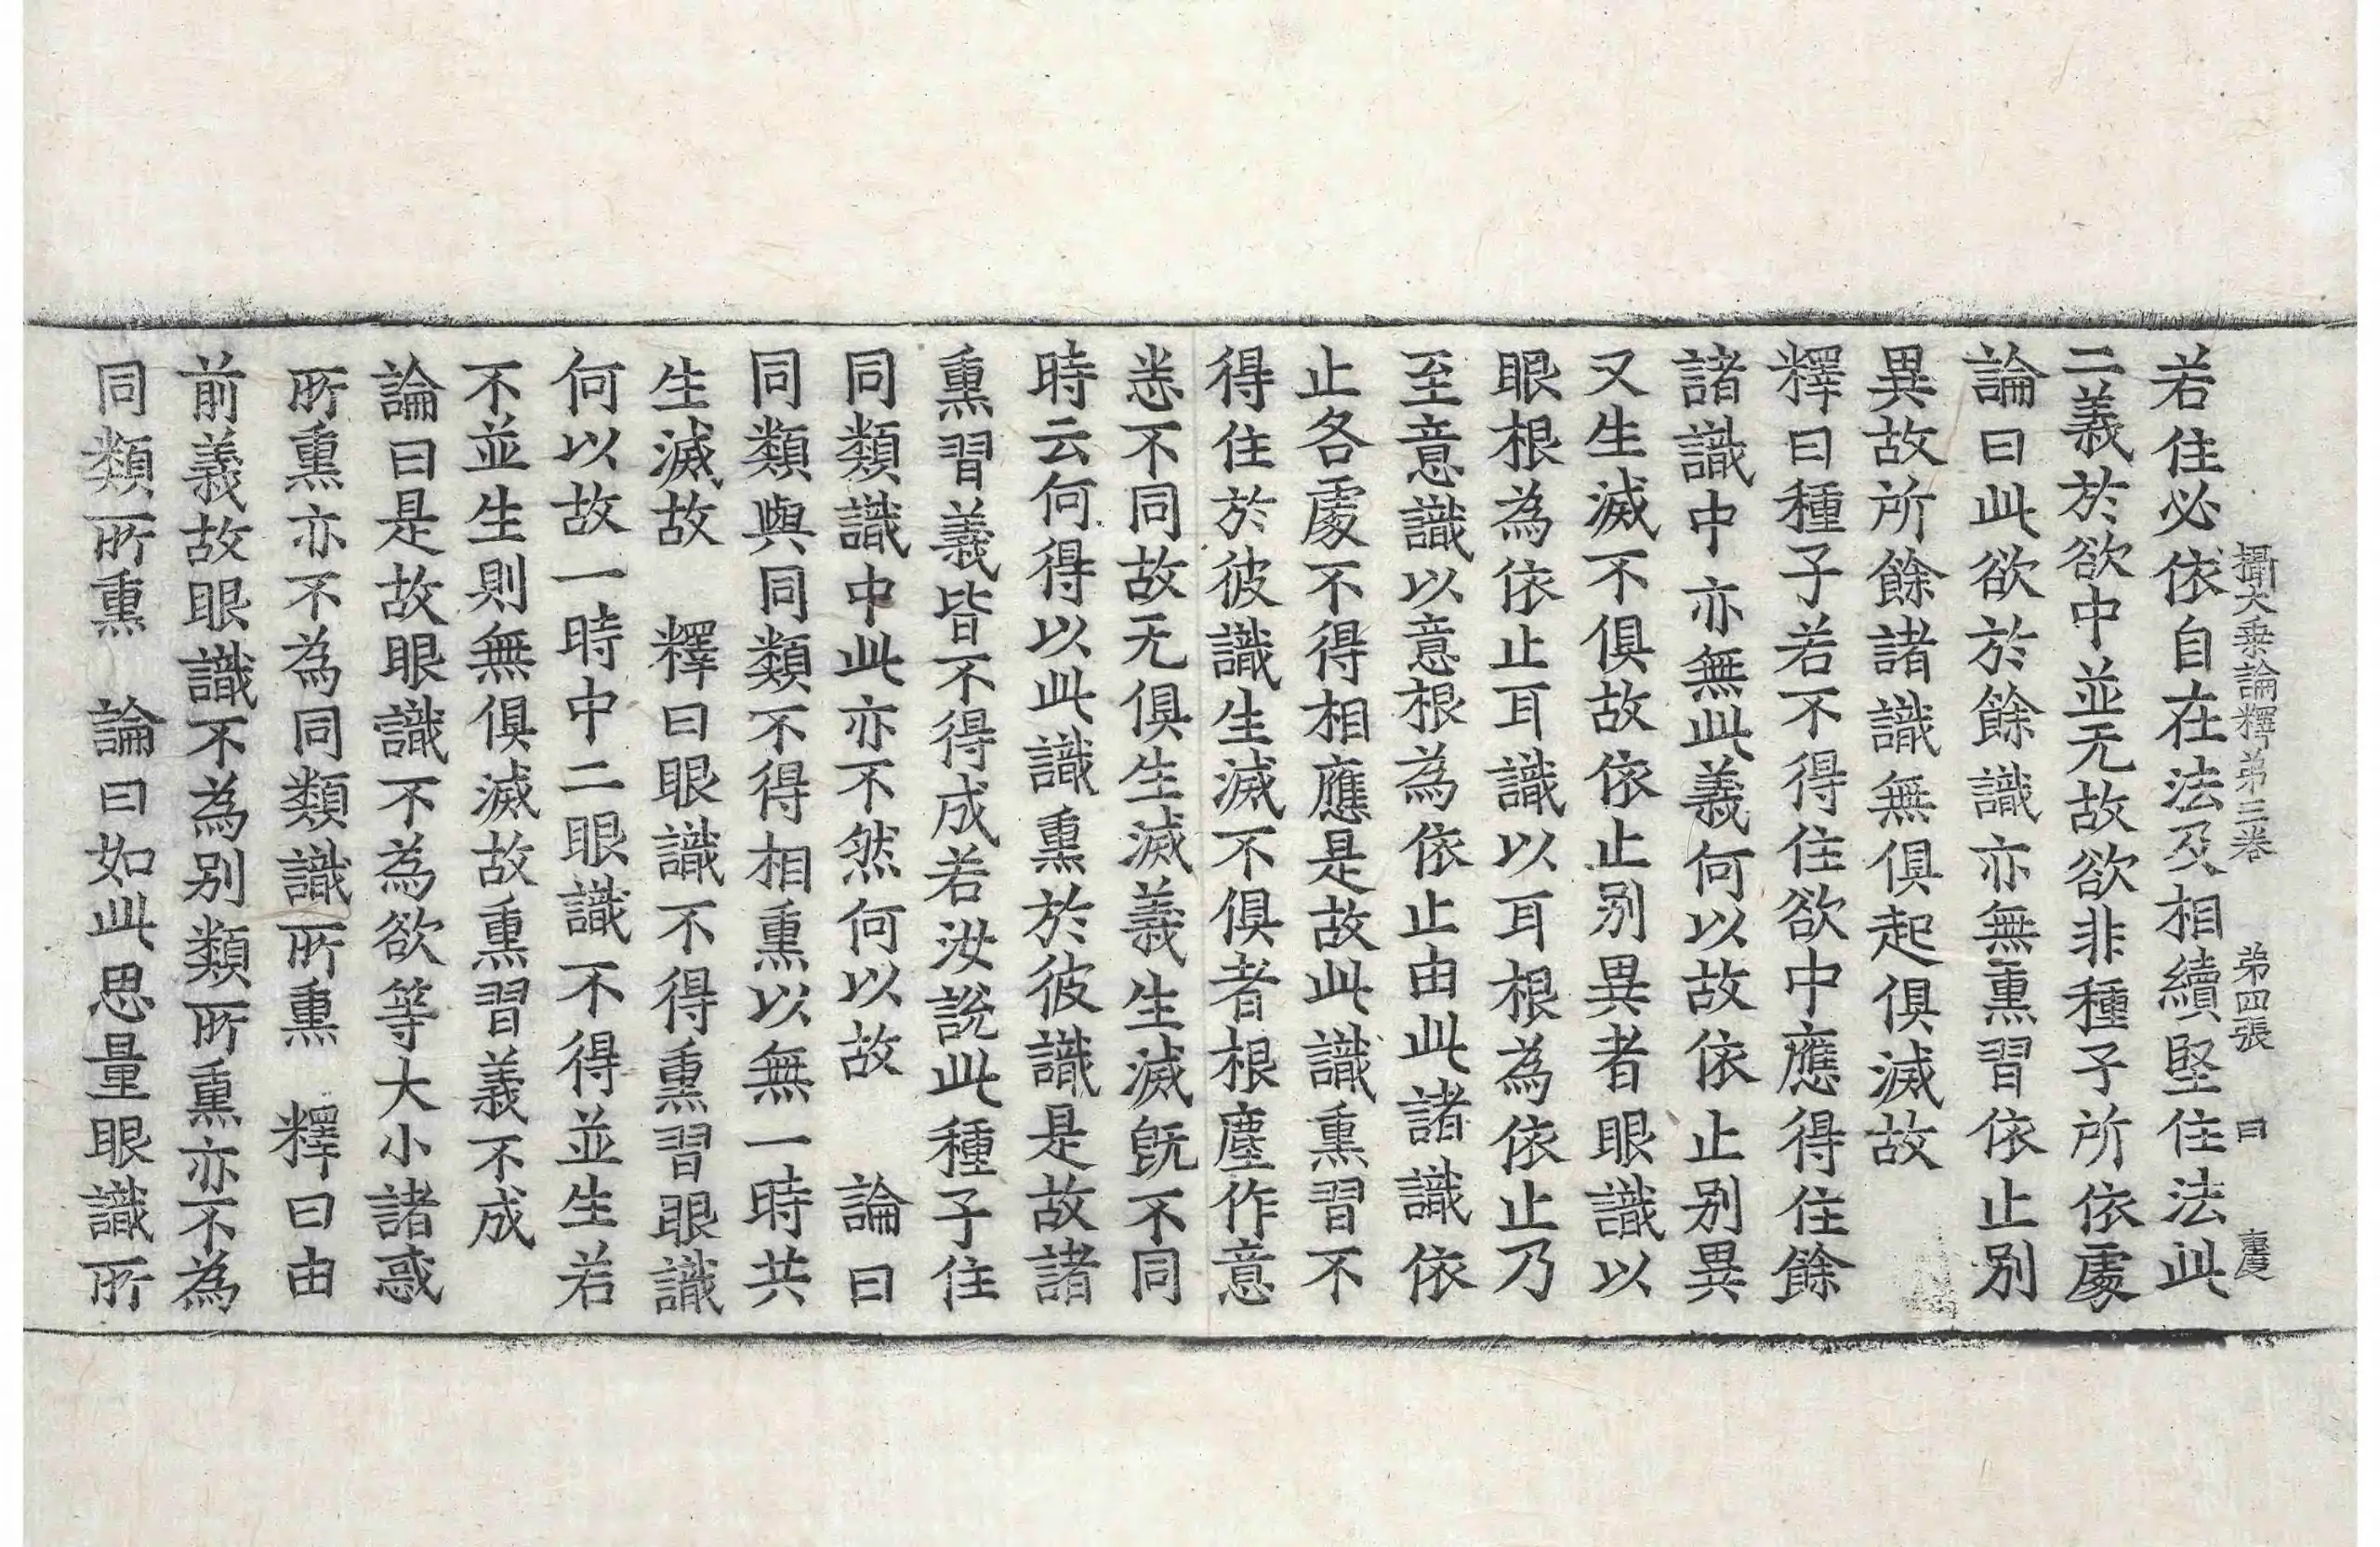 攝大乗論釋弟三卷　弟四張　曰　
若住必依自在法及相續堅住法此
二義於欲中並无故欲非種子所依處
論曰此欲於餘識亦無熏習依止別
異故所餘諸識無俱起俱滅故
釋曰種子若不得住欲中應得住餘
諸識中亦無此義何以故依止別異
又生滅不俱故依止別異者眼識以
眼根為依止耳識以耳根為依止乃
至意識以意根為依止由此諸識依
止各處不得相應是故此識熏習不
得住於彼識生滅不俱者根塵作意
悉不同故无俱生滅義生滅旣不同
時云何得以此識熏於彼識是故諸
熏習義皆不得成若汝說此種子住
同類識中此亦不然何以故　論曰
同類與同類不得相熏以無一時共
生滅故　釋曰眼識不得熏習眼識
何以故一時中二眼識不得並生若
不並生則無俱滅故熏習義不成
論曰是故眼識不為欲等大小諸惑
所熏亦不為同類識所熏　釋曰由
前義故眼識不為別類所熏亦不為
同類所熏　論曰如此思量眼識所